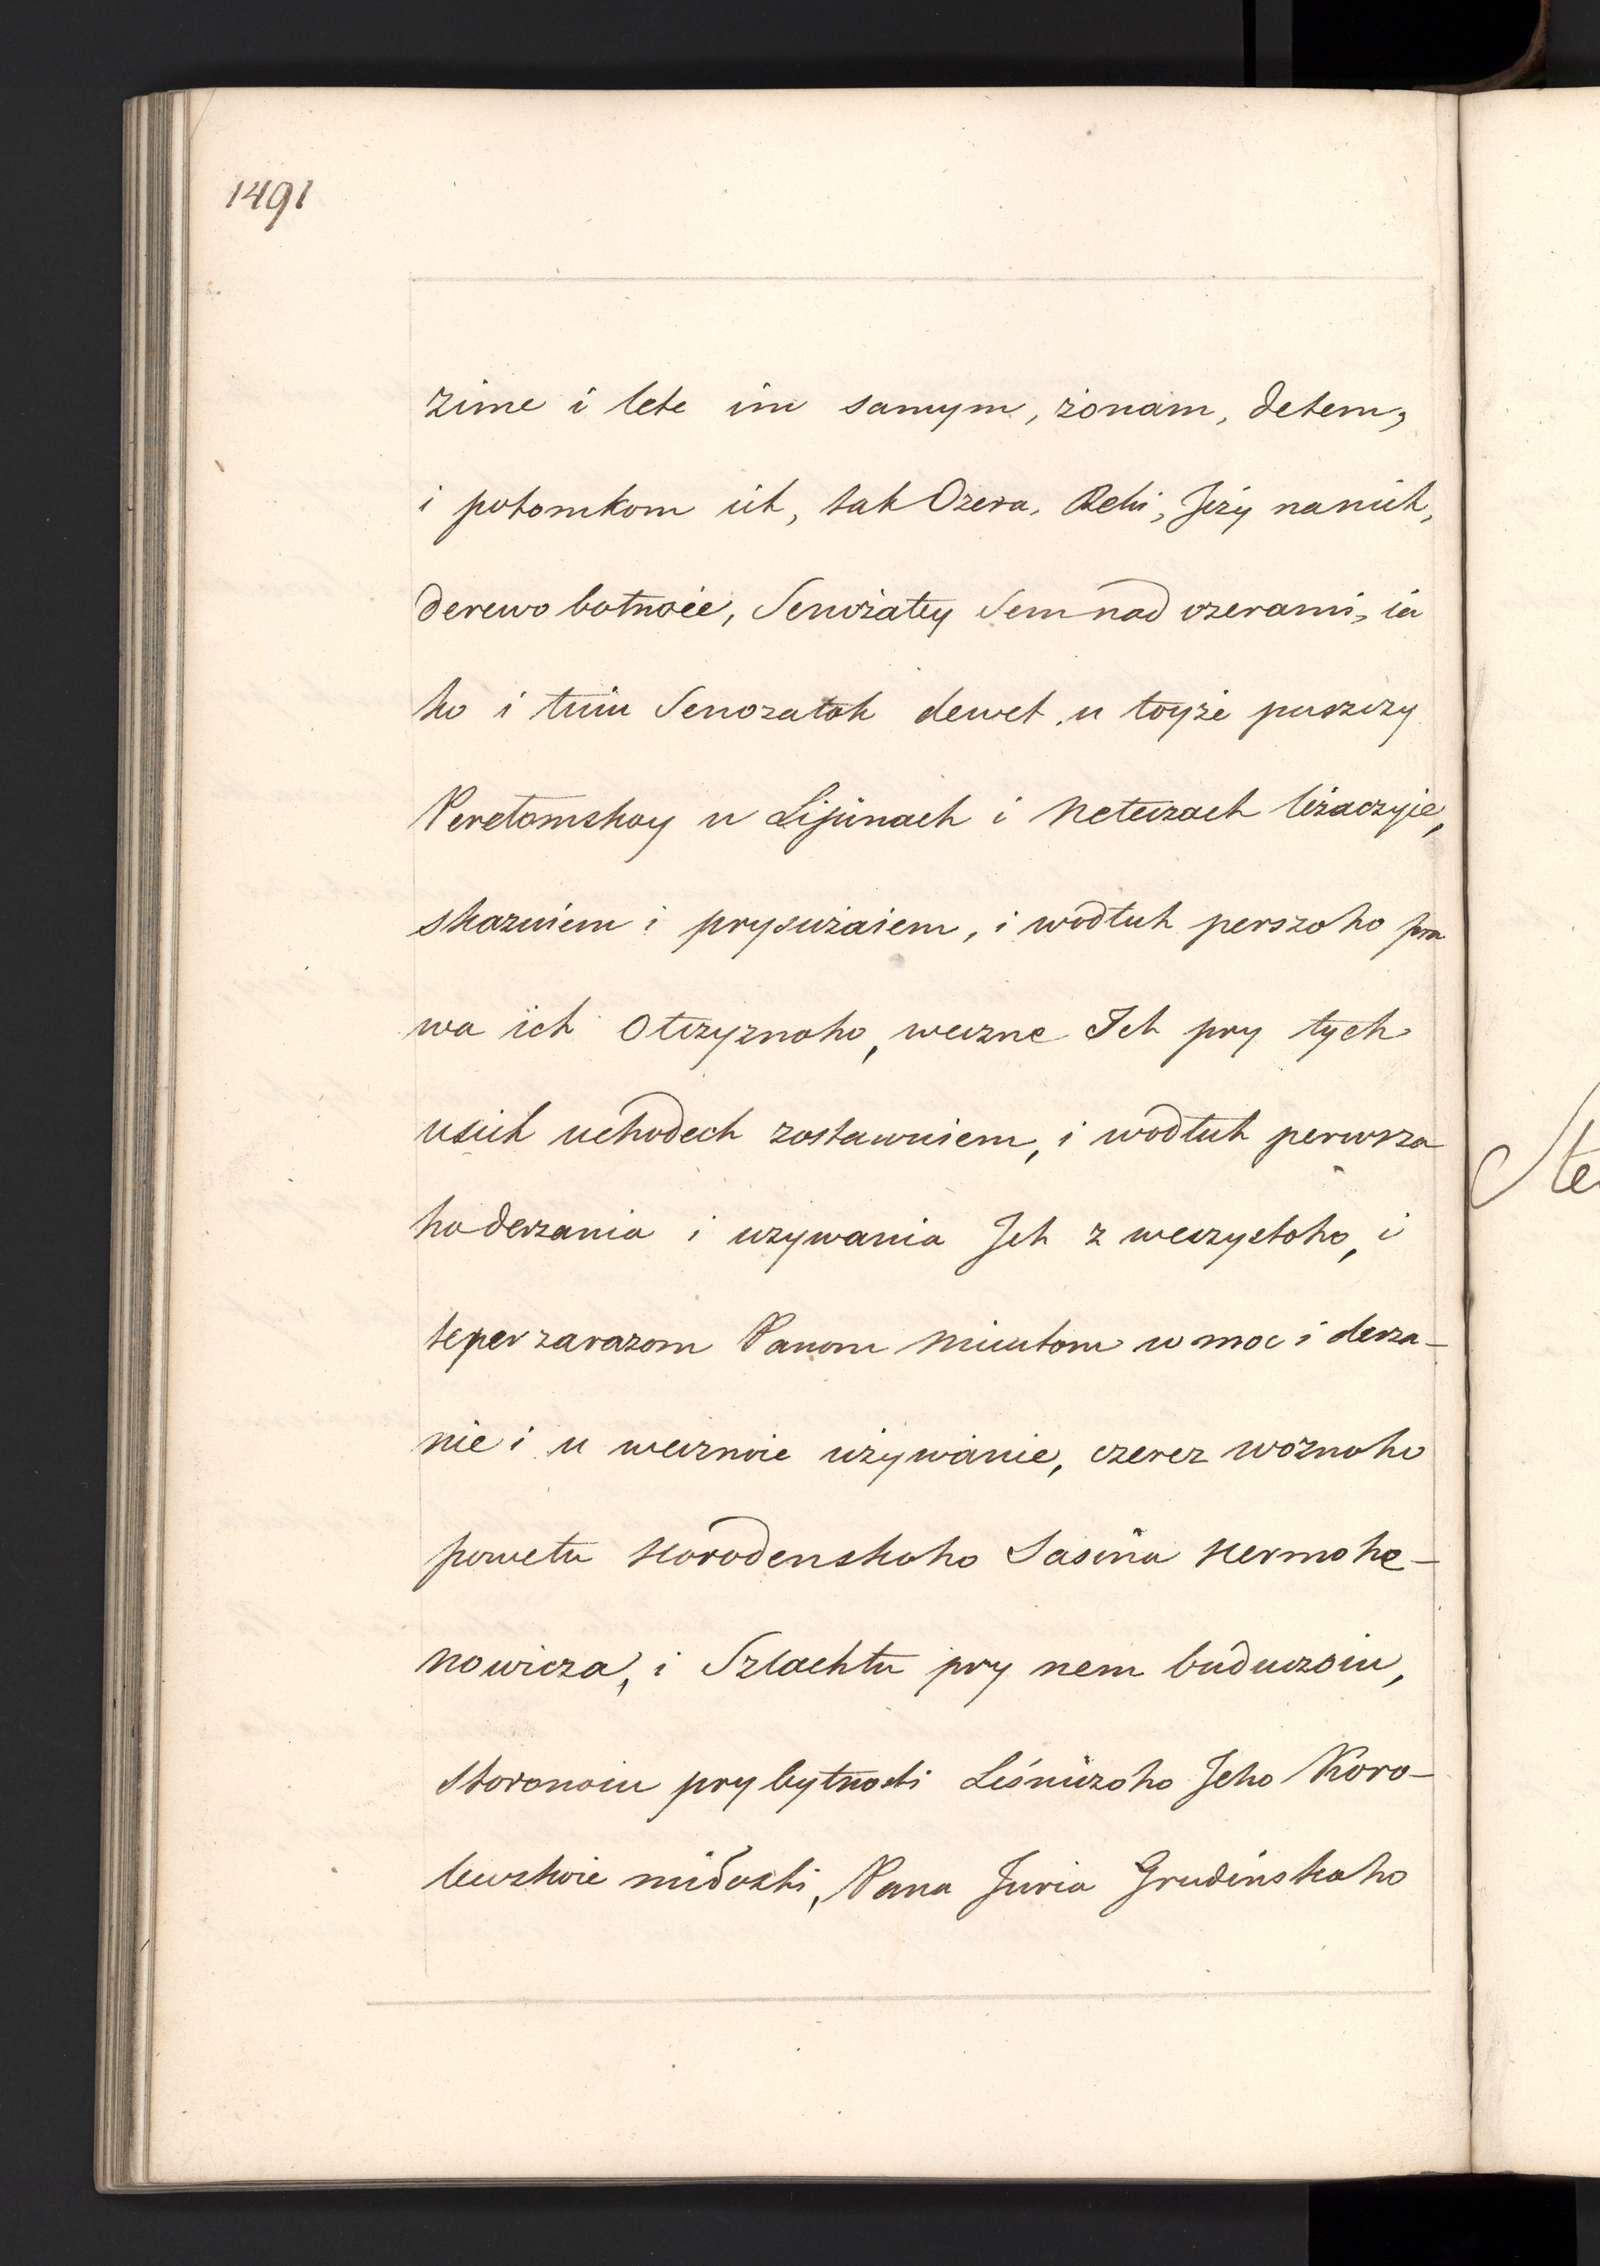 1491
zime i lete im samym, żonam, detem,
i potomkom ich, tak Ozera, Reki, Jezy na nich,
derewo botnoie, Senożaty Sem nad ozerami, ia
ko i tuiu Senozatok dewet u toyże puszczy
Peretomskoy u Lipinach i Neteczach leżaczyie,
skazuiem i prysużaiem, i wodłuh perszoho pra
wa ich Otczyznoho, weczne Ich pry tych
usich uchodech zostawuiem, i wodłuh perwszo
ho derzania i uzywania Ich z weczystoho, i
teper zarazom Panom Micutom w moc i derza-
nie i u wecznoie używanie, czerez woznoho
powetu Horodenskoho Sasina Hermohe-
nowicza, i Szlachtu pry nem buduczoiu,
storonoiu pry bytnosti Leśniczoho Jeho Koro-
lewskoie miłosti, Pana Juria Grudinskoho
Ste